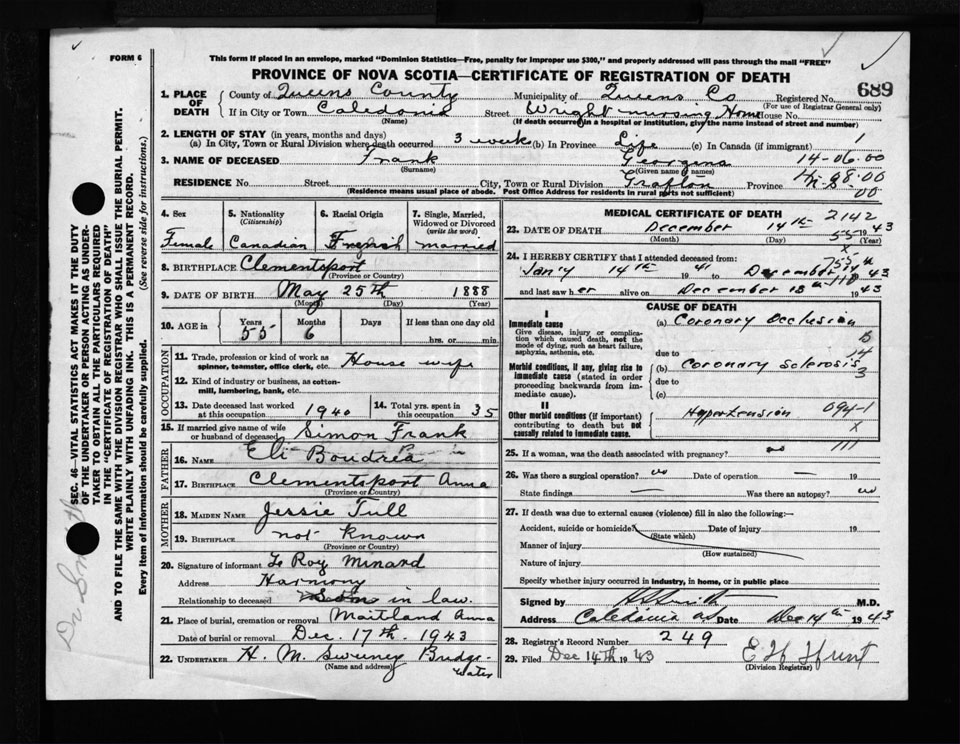 FORM 6
This form if placed in an envelope, marked "Dominion Statistics—Free, penalty for improper use $300," and properly addressed will pass through the mail "FREE"
PROVINCE OF NOVA SCOTIA—CERTIFICATE OF REGISTRATION OF DEATH
1. PLACE OF DEATH
County of Queens County Municipality of Queens Co Registered No. 689
(For use of Registrar General only)
If in City or Town Caledonia Street Wright nursing Home House No.
(Name) (If death occurred in a hospital or institution, give the name instead of street and number)
2. LENGTH OF STAY (in years, months and days)
(a) In City, Town or Rural Division where death occurred 3 weeks (b) In Province Life (c) In Canada (if immigrant) 1
3. NAME OF DECEASED Frank Georgena 14-06.00
(Surname) (Given name or names)
RESIDENCE No. Street City, Town or Rural Division Grafton Province N.S. 98.00
(Residence means usual place of abode. Post Office Address for residents in rural parts not sufficient) 00
4. Sex Female
5. Nationality (Citizenship) Canadian
6. Racial Origin
7. Single, Married, Widowed or Divorced (write the word) married
8. BIRTHPLACE Clementsport
(Province or Country)
9. DATE OF BIRTH May 25th 1888
(Month) (Day) (Year)
10. AGE in Years 55 Months 6 Days If less than one day old hrs. or min.
OCCUPATION
11. Trade, profession or kind of work as spinner, teamster, office clerk, etc. House wife
12. Kind of industry or business, as cotton-mill, lumbering, bank, etc.
13. Date deceased last worked at this occupation 1940
14. Total yrs. spent in this occupation 35
15. If married give name of wife or husband of deceased Simon Frank
FATHER
16. NAME Eli Boudrea
17. BIRTHPLACE Clementsport Anna
(Province or Country)
MOTHER
18. MAIDEN NAME Jessie Tull
19. BIRTHPLACE not known
(Province or Country)
20. Signature of informant Le Roy Minard
Address Harmony
Relationship to deceased in law.
21. Place of burial, cremation or removal Maitland Anna
Date of burial or removal Dec. 17th. 1943
22. UNDERTAKER H. M. Sweeney Bridge-
water
(Name and address)
MEDICAL CERTIFICATE OF DEATH 2142
23. DATE OF DEATH December 14th 1943
(Month) (Day) (Year)
55
x
24. I HEREBY CERTIFY that I attended deceased from:
Jan'y 14th 1941 to December 1943
and last saw her alive on December 13th 1943
CAUSE OF DEATH
I
Immediate cause
Give disease, injury or complication which caused death, not the mode of dying, such as heart failure, asphyxia, asthenia, etc.
(a) Coronary Occlusion
due to
Morbid conditions, if any, giving rise to immediate cause (stated in order proceeding backwards from immediate cause).
(b) Coronary Sclerosis
due to
(c)
II
Other morbid conditions (if important) contributing to death but not causally related to immediate cause.
Hypertension 094-1
x
25. If a woman, was the death associated with pregnancy? no 111
26. Was there a surgical operation? no Date of operation — 19
State findings — Was there an autopsy? no
27. If death was due to external causes (violence) fill in also the following:—
Accident, suicide or homicide? Date of injury 19
(State which)
Manner of injury
(How sustained)
Nature of injury
Specify whether injury occurred in industry, in home, or in public place
Signed by M.D.
Address Caledonia Date Dec 14th 1943
28. Registrar's Record Number 249
29. Filed Dec 14th 1943 E H Hunt
(Division Registrar)
SEC. 46—VITAL STATISTICS ACT MAKES IT THE DUTY
OF THE UNDERTAKER OR PERSON ACTING AS UNDER-
TAKER TO OBTAIN ALL THE PARTICULARS REQUIRED
IN THE "CERTIFICATE OF REGISTRATION OF DEATH"
AND TO FILE THE SAME WITH THE DIVISION REGISTRAR WHO SHALL ISSUE THE BURIAL PERMIT.
WRITE PLAINLY WITH UNFADING INK. THIS IS A PERMANENT RECORD.
Every item of information should be carefully supplied. (See reverse side for instructions.)
Dr Smith